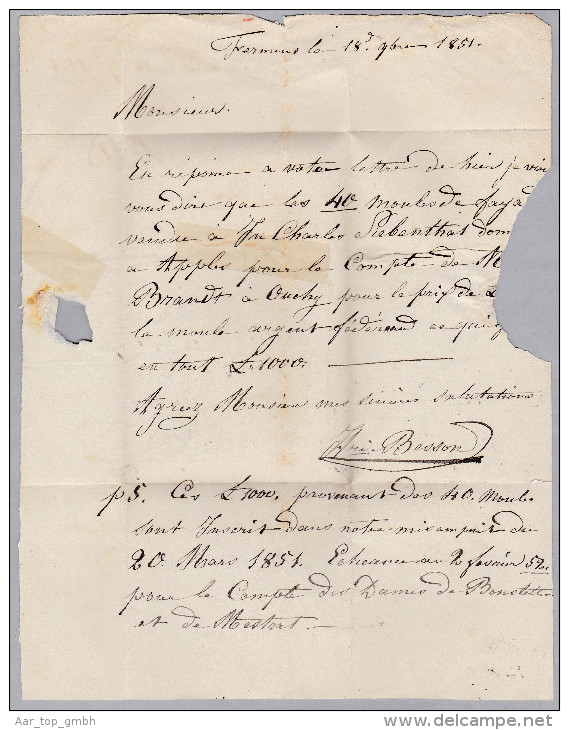 le 18.r 9bre 1851.
Monsieur.
En réponse a votre lettre de hier je
vous dire que les 40 moules de
vendue à Charles Siebenthal
a Apples pour le Compte de
Brandt à Ouchy pour le prix de
la moule argent fédéraud ce qui
en tout £ 1000.
Agreez Monsieur mes sincères salutations
Besson
pS. Ces £ 1000. provenant des 40. Moule
sont Inscrit dans notre du
20. Mars 1851. Echeance au 2 fevrier 52
pour le Compte des Dames de
et de
Aar_top_gmbh
www.delcampe.net